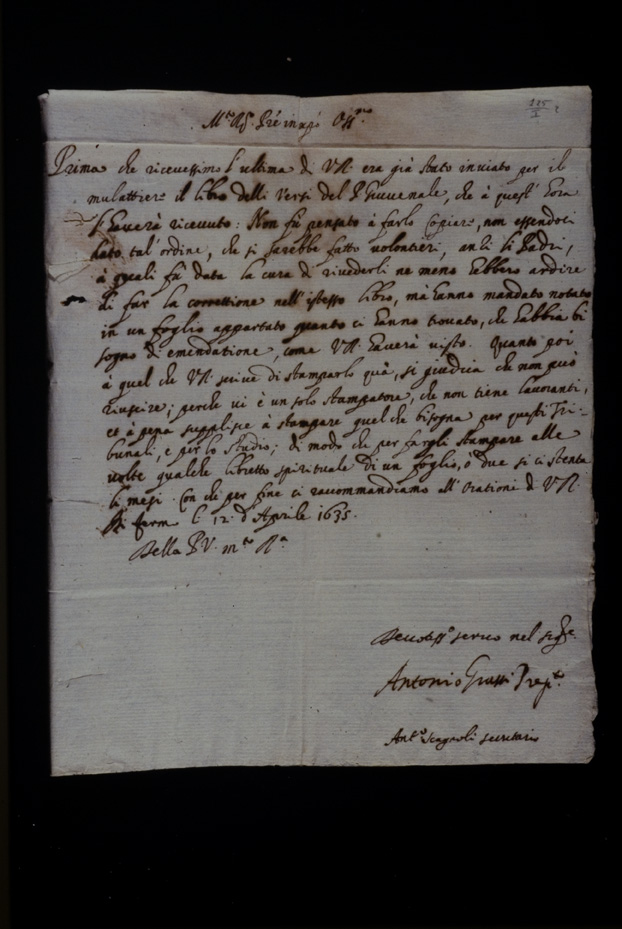 M.to R.do P.re in xp̃o Oss.mo
Prima che ricevessimo l'ultima di V.R. era già stato inviato per il
mulattiere il libro delli Versi del P. Giuvenale, che à quest'hora
l'haverà ricevuto: Non fù pensato à farlo copiare, non essendoci
dato tal'ordine, che si sarebbe fatto volontieri, anzi li Padri,
à quali fù data la cura di rivederli ne meno hebbero ardire
di far la correttione nell'istesso libro, mà hanno mandato notato
in un foglio appartato quanto ci hanno trovato, che habbia bi
sogno di emendatione, come V.R. haverà visto. Quanto poi
à quel che V.R. scrive di stamparlo quà, si giudica che non può
riuscire; perche vi è un solo stampatore, che non tiene lavoranti,
et à pena supplisce à stampare quel che bisogna per questi Tri-
bunali, e per lo studio; di modo che per fargli stampare alle
volte qualche libretto spirituale di un foglio, ò due si ci stenta
li mesi. Con che per fine ci raccommandiamo all'Orationi di V.R.
Di fermo li 12. d'Aprile 1635.
Della P.V. m.to R.da
Devotiss.o servo nel sig.re
Antonio Grassi Prep.to
Ant.o scagnoli secretario